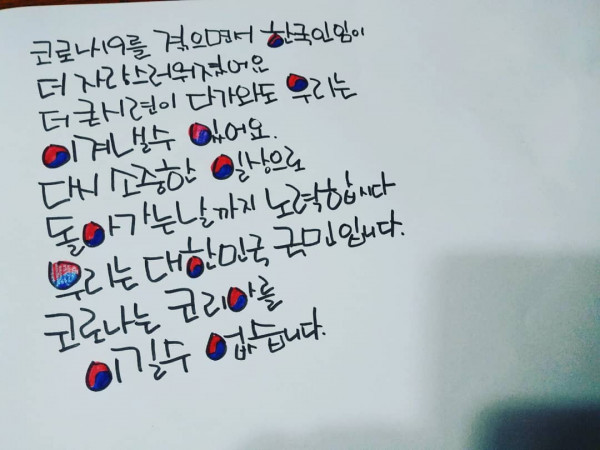 코로나19를 겪으면서 한국인임이
더 자랑스러워졌어요
더 큰시련이 다가와도 우리는
이겨낼수 있어요.
다시 소중한 일상으로
돌아가는날까지 노력합시다
우리는 대한민국 국민입니다.
코로나는 코리아를
이길수 없습니다.